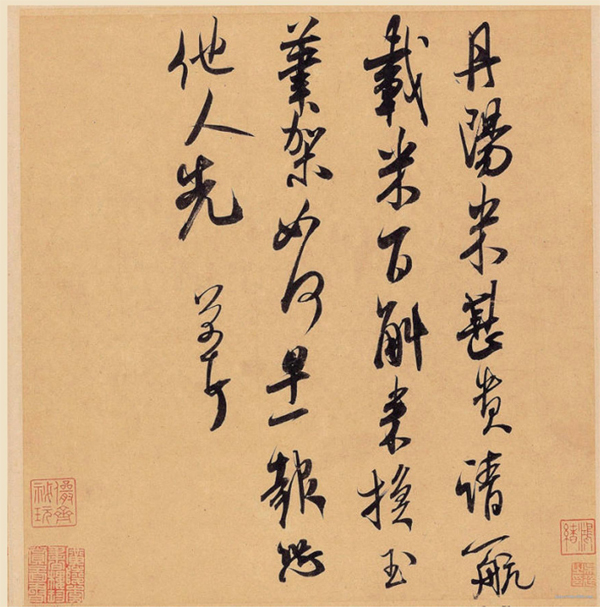 丹陽米甚貴請一航
載米百斛來換玉
筆架如何早一報恐
他人先 芾頓首
儼齋秘玩